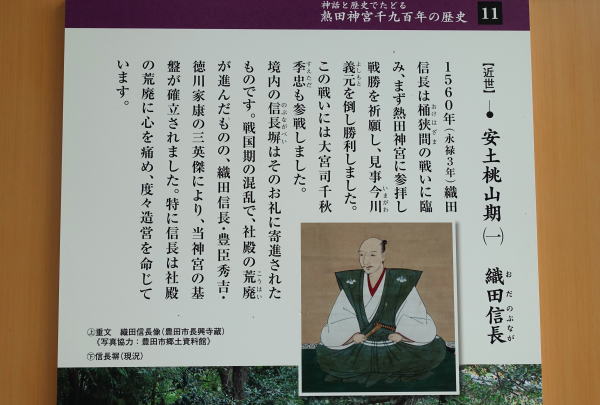 神話と歴史でたどる
熱田神宮千九百年の歴史
11
【近世】
安土桃山期(一) 織田信長
おだ のぶなが
1560年(永禄3年)織田
信長は桶狭間の戦いに臨
おけはざま
み、まず熱田神宮に参拝し
戦勝を祈願し、見事今川
いまがわ
義元を倒し勝利しました。
よしもと
この戦いには大宮司千秋
季忠も参戦しました。
すえただ
境内の信長塀はそのお礼に寄進された
のぶながべい
ものです。戦国期の混乱で、社殿の荒廃
こうはい
が進んだものの、織田信長・豊臣秀吉・
徳川家康の三英傑により、当神宮の基
盤が確立されました。特に信長は社殿
の荒廃に心を痛め、度々造営を命じて
います。
㊤重文 織田信長像(豊田市長興寺蔵)
《写真協力:豊田市郷土資料館》
㊦信長塀(現況)